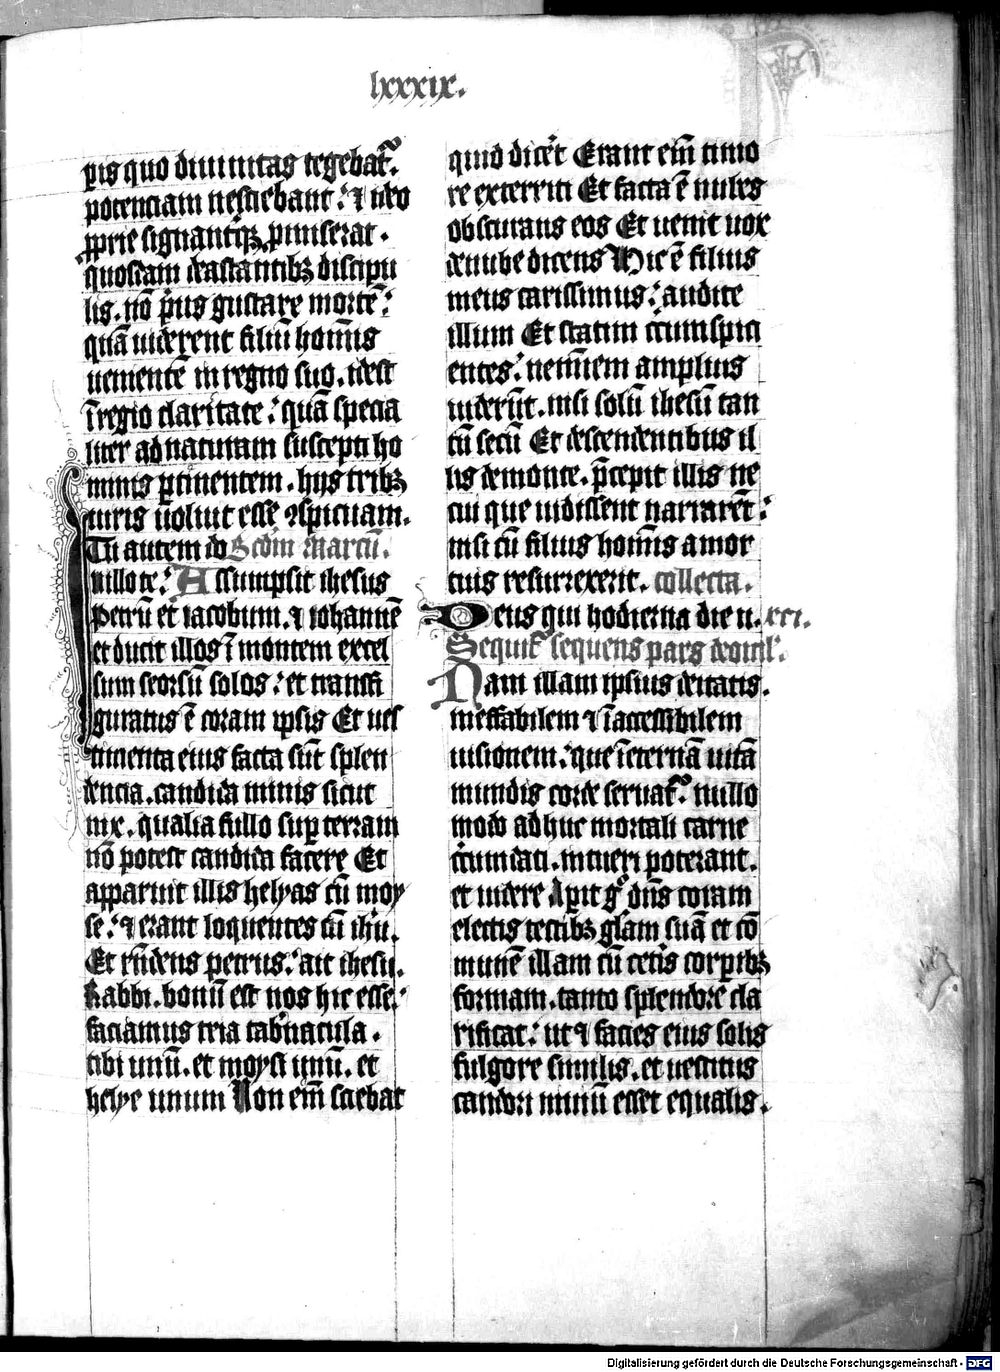 lxxxix.
pis quo diuinitas tegebat᷑.
potenciam nesciebant: ⁊ ideo
pprie signantiꝗ pmiserat.
quosdam deastantibꝫ discipu
lis. nō p̄us gustare mortē:
quā uiderent filiū hoīs
uenientē in regno suo. idest
ī regio claritate: quā specia
liter ad naturam suscepti ho
minis ꝑtinentem. hijs tribꝫ
uiris uoluit esse ꝯspicuam.
Tu autem do Scdm Marcū.
In illo te: Assumpsit ihesus
petrū et iacobum. ⁊ iohannē
et ducit illos ī montem excel
sum seorsū solos: et transfi
guratus ē coram ipsis Et ues
timenta eius facta sūt splen
dencia. candida nimis sicut
nix. qualia fullo suꝑ terram
nō potest candida facere Et
apparuit illis helyas cū moy
se: ⁊ erant loquentes cū ihū.
Et rn̄dens petrus: ait ihesu.
Rabbi. bonū est nos hic esse:
faciamus tria tabnacula.
tibi unū. et moysi unū. et
helye unum Non em̄ sciebat
quid dicet Erant em̄ timo
re exterriti Et facta ē nubes
obscurans eos Et uenit uox
denube dicens Hic ē filius
meus carissimus: audite
illum Et statim ccumspici
entes: nemīem amplius
uiderūt. nisi solū ihesū tan
tū secū Et descendentibus il
lis demonte. p̄cepit illis ne
cui que uidissent narrarēt:
nisi cū filius hoīs amor
tuis resurrexerit. collecta.
Deus qui hodierna die u. xxi.
Sequit᷑ sequens pars deomel:
Nam illam ipsius deitatis.
ineffabilem ⁊ īaccessibilem
uisionem: que īeternā uitā
mundis corde seruat᷑. nullo
modo adhuc mortali carne
ccumdati. intueri poterant.
et uidere Apit gͦ dn̄s coram
electis testibꝫ gl̄am suā et cō
munē illam cū cet̄is corꝑibꝫ
formam. tanto splendore cla
rificat: ut ⁊ facies eius solis
fulgore similis. et uestitus
candori niuiū esset equalis.
Digitalisierung gefördert durch die Deutsche Forschungsgemeinschaft - DFG